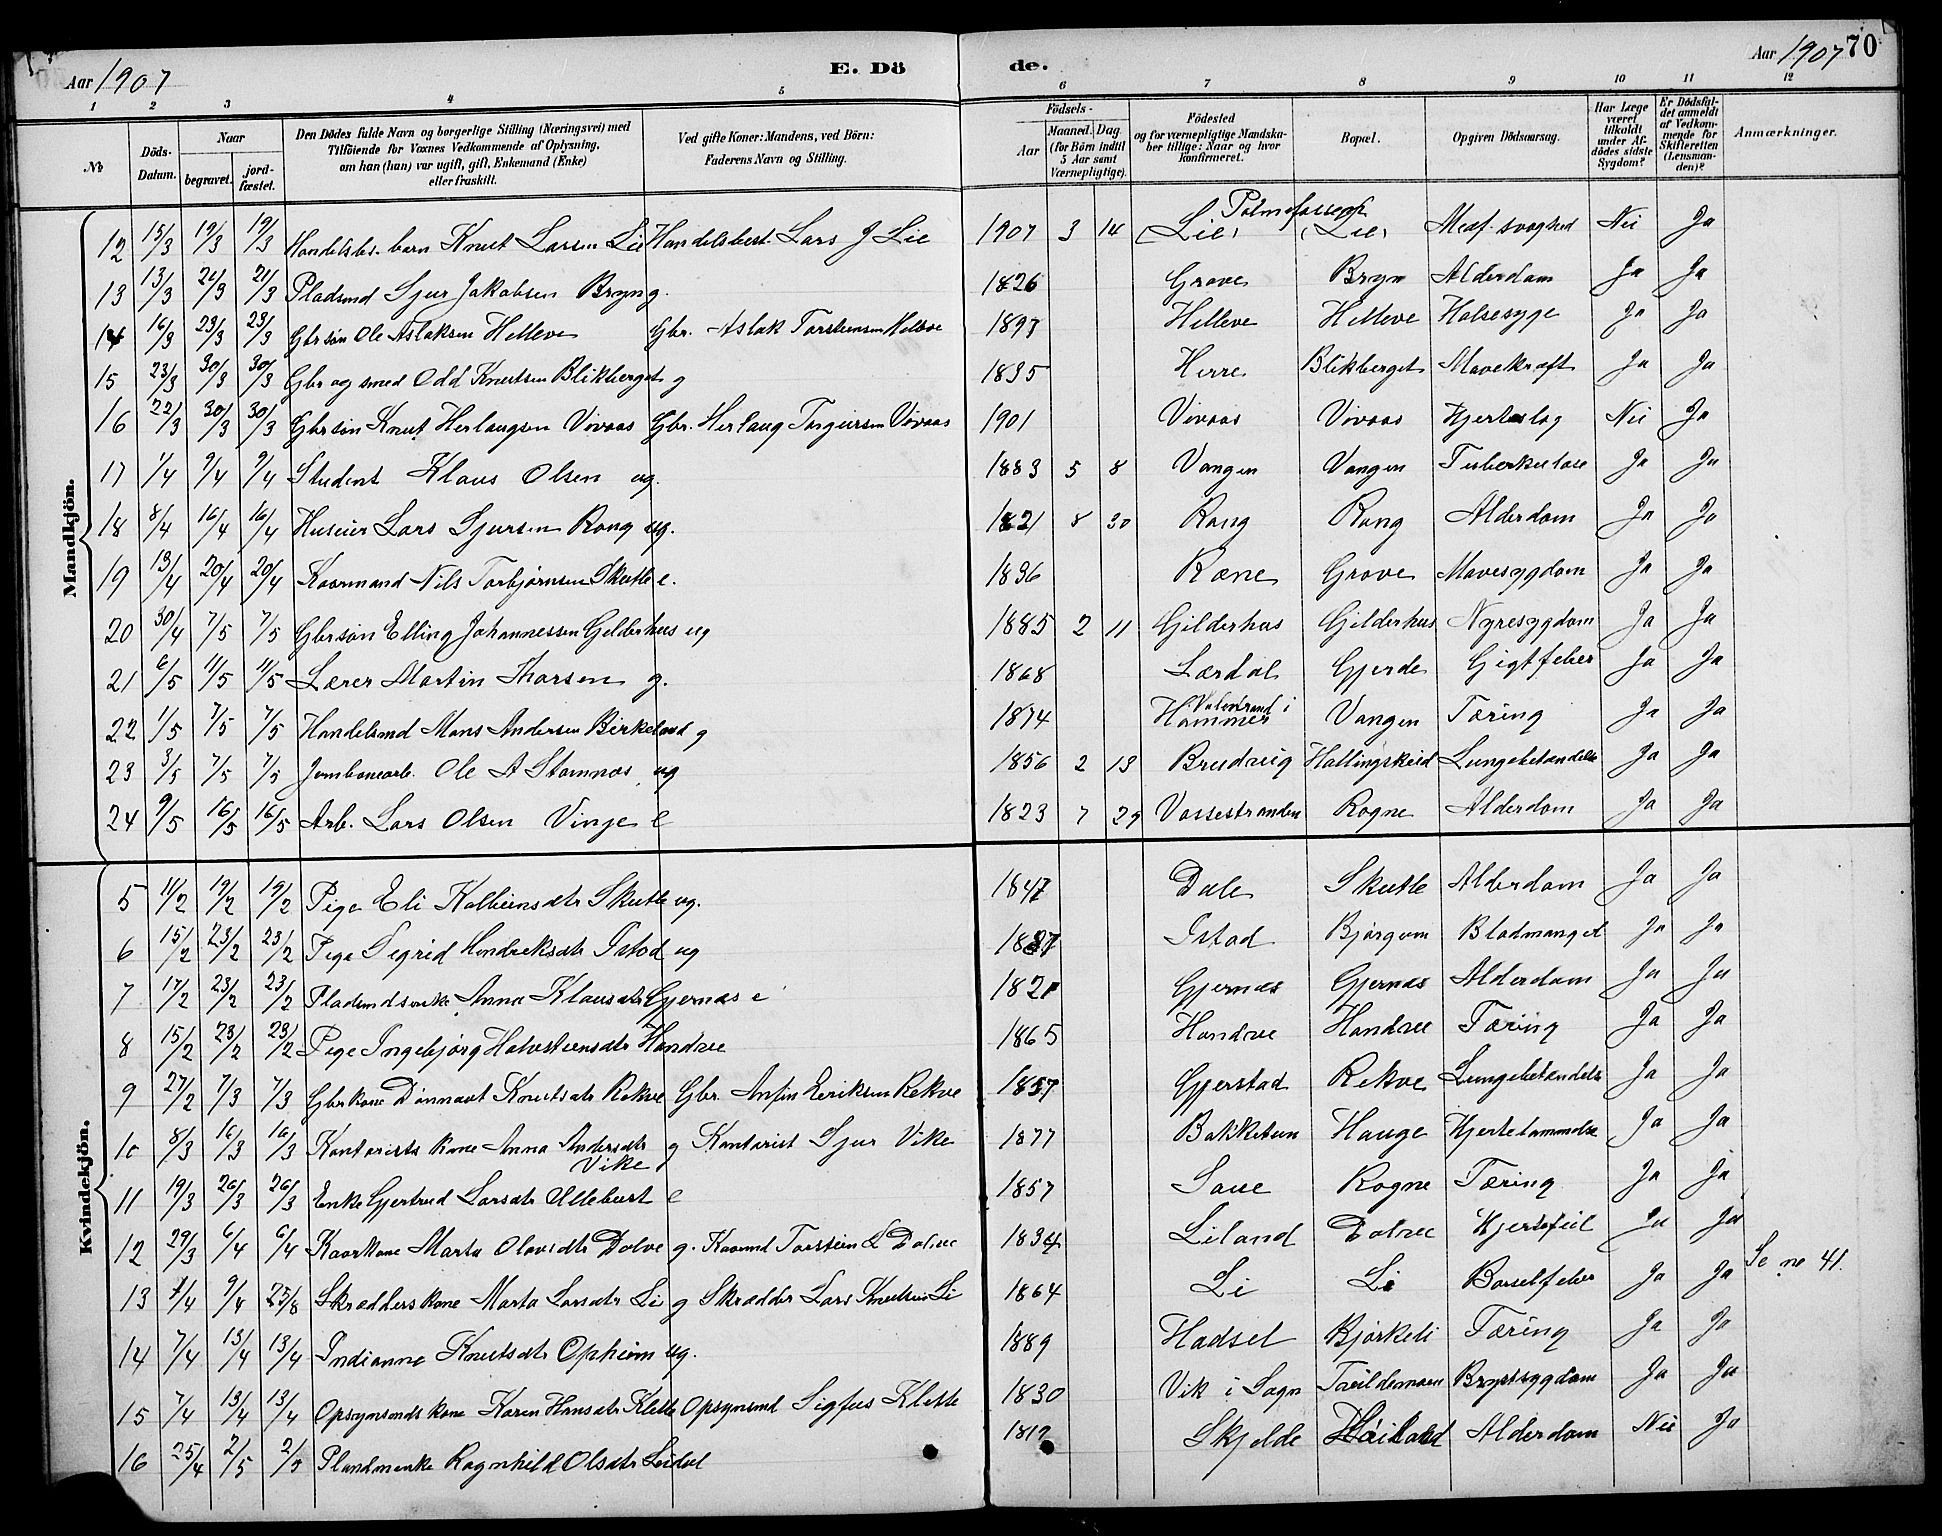 Aar 1907
E. Dö
de.
Aar 1907
70
1 2 3 4 5 6 7 8 9 10 11 12
No
Döds-Datum.
Naar
begravet.
jordfæstet.
Den Dödes fulde Navn og borgerlige Stilling (Næringsvei) med
Tilföiende for Voxnes Vedkommende af Oplysning,
om han (hun) var ugift, gift, Enkemand (Enke)
eller fraskilt.
Ved gifte Koner: Mandens, ved Börn:
Faderens Navn og Stilling.
Födsels-
Aar
Maaned. Dag.
(for Börn indtil
5 Aar samt
Værnepligtige).
Födested
og for værnepligtige Mandska-
ber tillige: Naar og hvor
konfirmeret.
Bopæl.
Opgiven Dödsaarsag.
Har Læge
været
tilkaldt
under Af-
dödes sidste
Sygdom?
Er Dödsfal-
det anmeldt
af Vedkom-
mende for
Skifteretten
(Lensman-
den)?
Anmærkninger.
Mandkjön.
12 15/3 19/3 19/3 Handelsbs. barn Knut Larsen Lie Handelsbest. Lars J Lie 1907 3 14 (Lie) Palmafossen (Lie) Medf. svaghed Nei Ja
13 13/3 21/3 21/3 Pladsmd Sjur Jakobsen Bryn g. 1826 Grove Bryn Alderdom Ja Ja
14 16/3 23/3 23/3 Gbrsøn Ole Aslaksen Helleve Gbr. Aslak Torsteinsen Helleve 1897 Helleve Helleve Halsesyge Ja Ja
15 23/3 30/3 30/3 Gbr og smed Odd Knutsen Blikberget g 1835 Herre Blikberget Mavekræft Ja Ja
16 22/3 30/3 30/3 Gbrsøn Knut Herlaugsen Vivaas Gbr. Herlaug Torgiersen Vivaas 1901 Vivaas Vivaas Hjerteslag Nei Ja
17 1/4 9/4 9/4 Student Klaus Olsen ug. 1883 5 8 Vangen Vangen Tuberkulose Ja Ja
18 8/4 16/4 16/4 Huseier Lars Sjursen Rong ug. 1821 8 30 Rong Rong Alderdom Ja Ja
19 13/4 20/4 20/4 Kaarmand Nils Torbjørnsen Skutle e. 1836 Røne Grove Mavesygdom Ja Ja
20 30/4 7/5 7/5 Gbrsøn Elling Johannessen Gilderhus ug 1885 2 11 Gilderhus Gilderhus Nyresygdom Ja Ja
21 6/5 11/5 11/5 Lærer Martin Thorsen g. 1868 Lærdal Gjerde Gigtfeber Ja Ja
22 1/5 7/5 7/5 Handelsmd Mons Andersen Birkeland g 1874 Valestrand i Hammer Vangen Tæring Ja Ja
23 3/5 7/5 7/5 Jernbanearb. Ole A Stamnæs ug 1856 2 13 Brudvig Hallingskeid Lungebetændelse Ja Ja
24 9/5 16/5 16/5 Arb. Lars Olsen Vinje e 1823 7 29 Vossestranden Rogne Alderdom Ja Ja
Kvindekjön.
5 11/2 19/2 19/2 Pige Eli Kolbeinsdtr Skutle ug. 1847 Dale Skutle Alderdom Ja Ja
6 15/2 23/2 23/2 Pige Sigrid Hendriksdtr Istad ug 1887 Istad Bjørgum Blodmangel Ja Ja
7 17/2 23/2 23/2 Pladsmdsenke Anna Klausdtr Gjernæs e 1821 Gjernæs Gjernæs Alderdom Ja Ja
8 15/2 23/2 23/2 Pige Ingebjørg Halvsteinsdtr Handve 1865 Handve Handve Tæring Ja Ja
9 27/2 7/3 7/3 Gbrkone Dønnaut Knutsdtr Rekve Gbr. Anfin Eriksen Rekve 1857 Gjerstad Rekve Lungebetændelse Ja Ja
10 8/3 16/3 16/3 Kontorists kone Anna Andersdtr Vike g Kontorist Sjur Vike 1877 Bakketun Hauge Hjertelammelse Ja Ja
11 19/3 26/3 26/3 Enke Gjertrud Larsdtr Ullebust e 1857 Saue Rogne Tæring Ja Ja
12 29/3 6/4 6/4 Kaarkone Marta Olavsdtr Dolve g. Kaarmd Torstein L Dolve 1834 Liland Dolve Hjertefeil Ja Ja
13 1/4 9/4 25/8 Skrædderskone Marta Larsdtr Li g Skrædder Lars Knutsen Li 1864 Li Li Barselfeber Ja Ja Se no 41.
14 7/4 13/4 13/4 Indianne Knutsdtr Opheim ug. 1889 Hadsel Bjørkeli Tæring Ja Ja
15 7/4 13/4 13/4 Opsynsmds kone Karen Hansdtr Klette Opsynsmd Sigfus Klette 1830 Vik i Sogn Tvildemoen Brystsygdom Ja Ja
16 25/4 2/5 2/5 Ragnhild Olsdtr 1812 Skjelde Alderdom Nei Ja